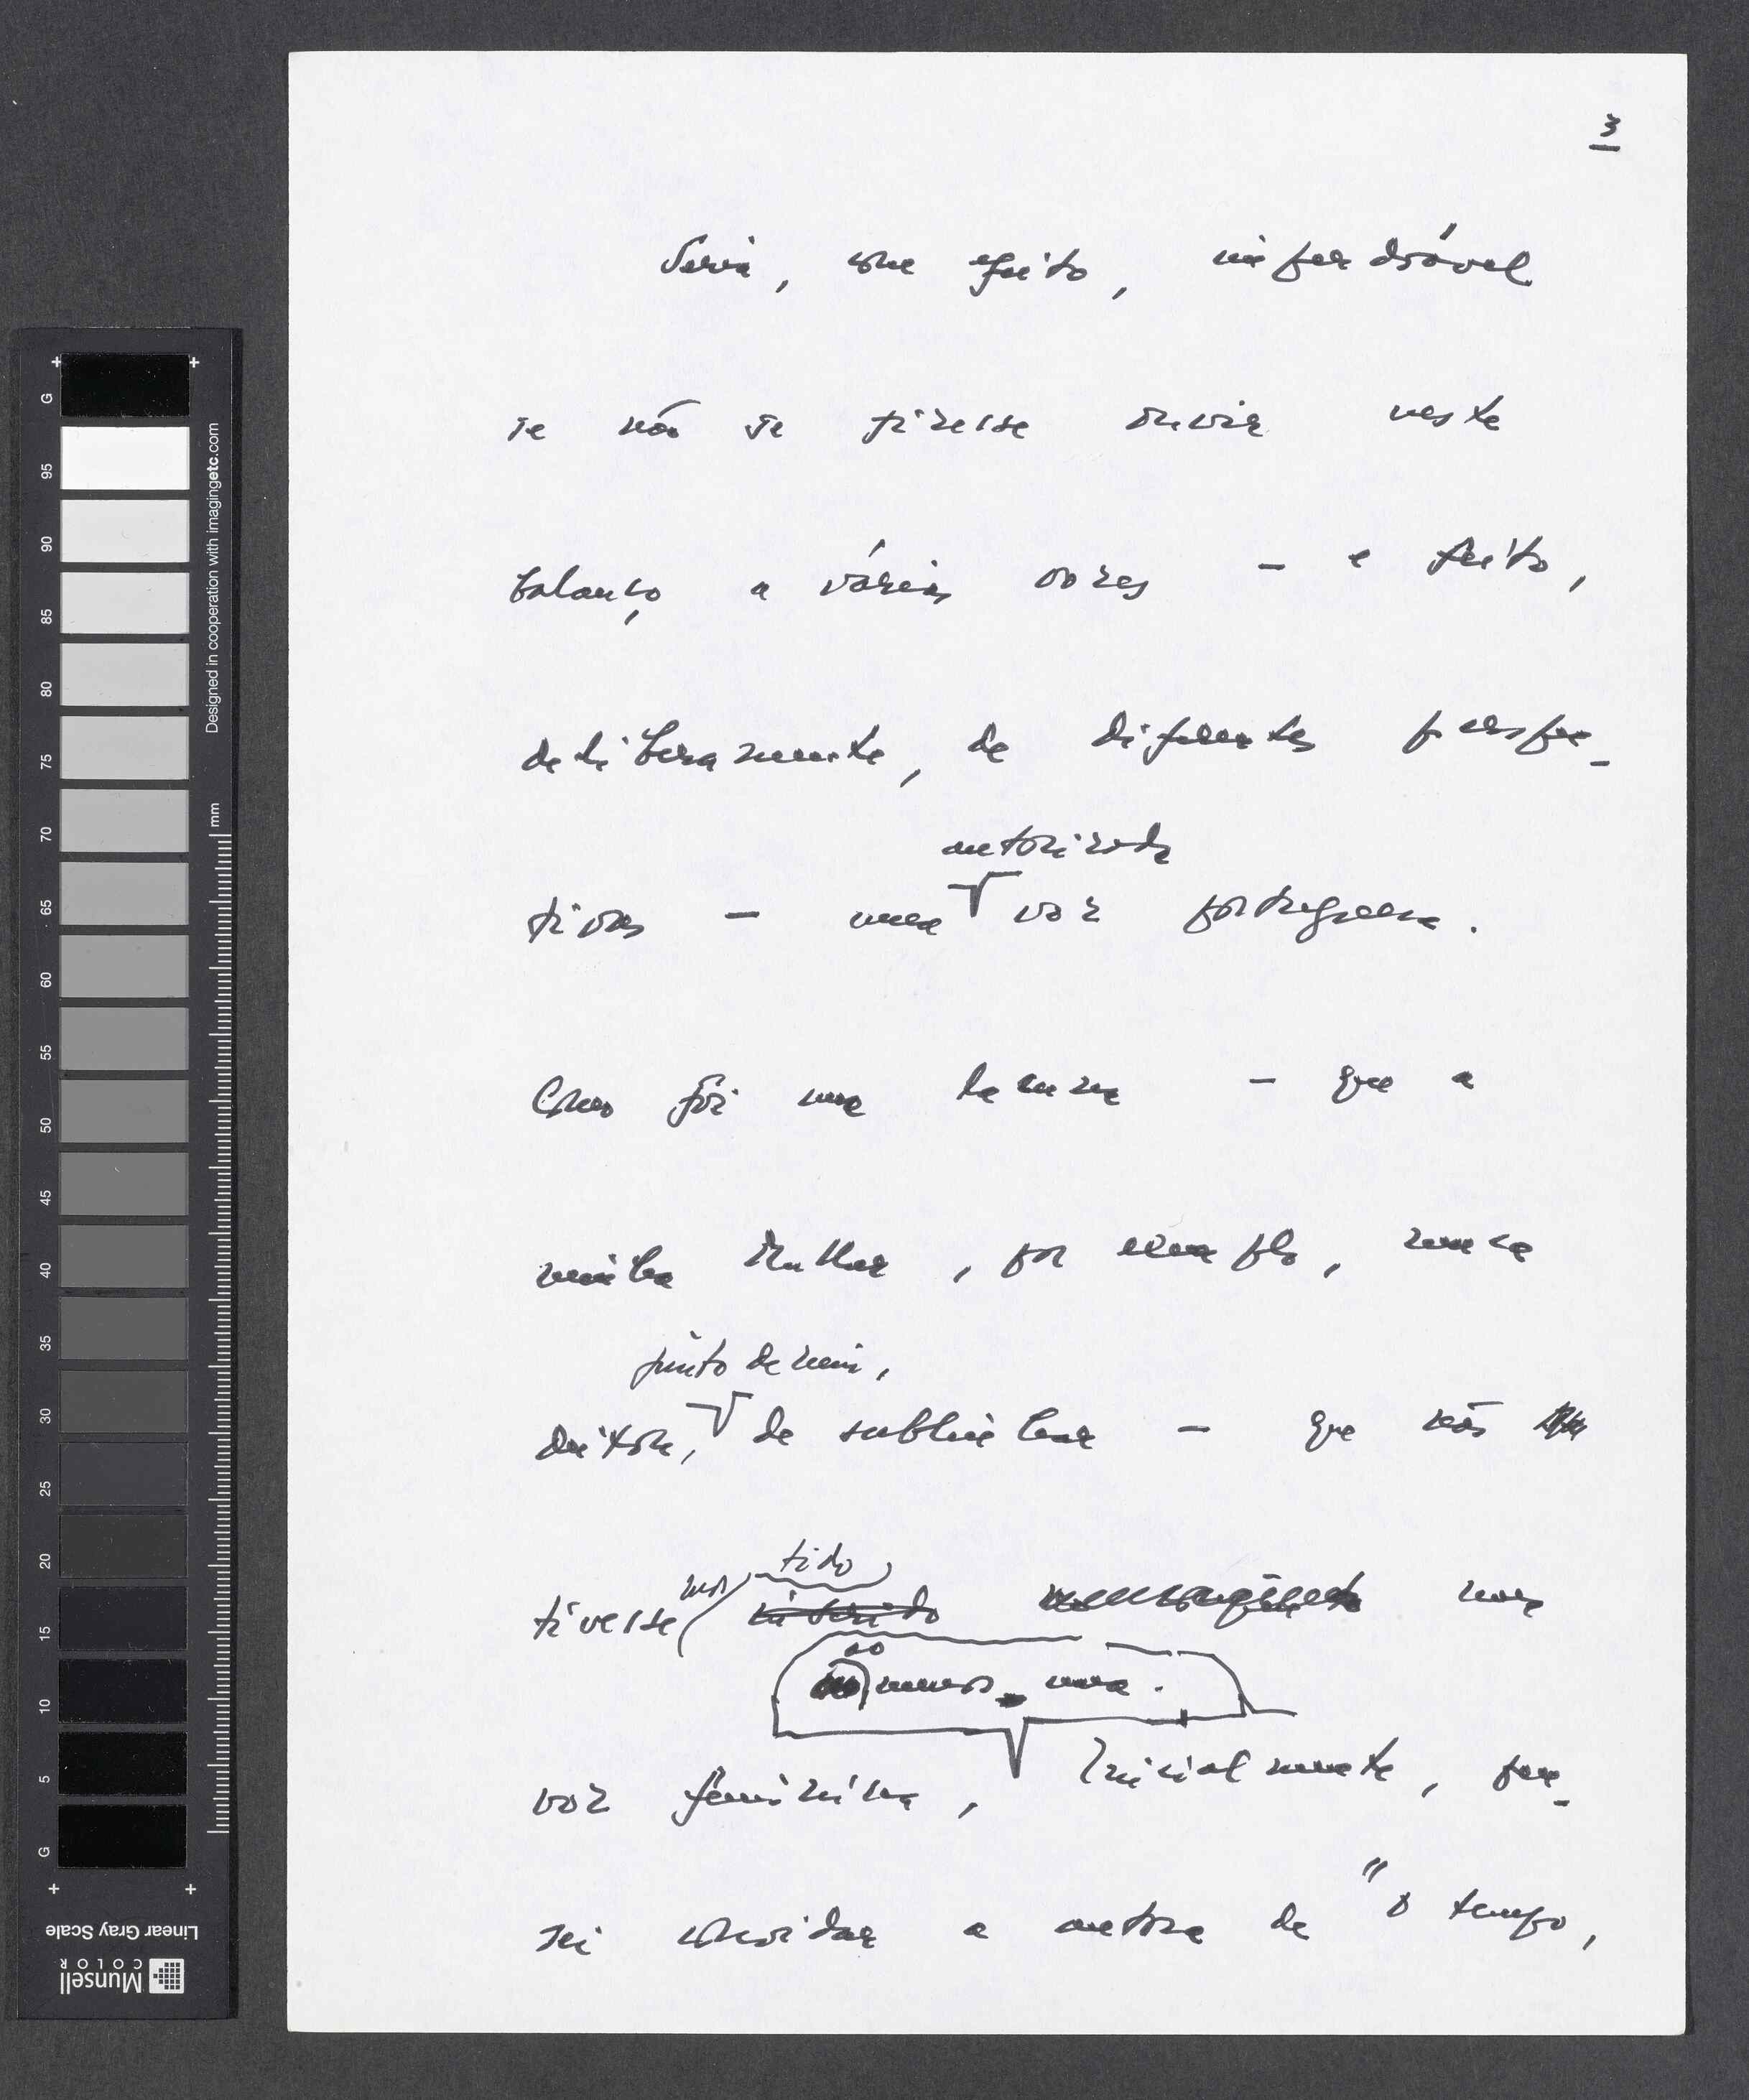 3
Seria, com efeito, imperdoável
se não se fizesse ouvir neste
balanço a várias vozes – e feito,
deliberamente, de diferentes perspe-
autorizada
tivas – uma voz portuguesa.
Como foi uma – que a
minha mulher, por exemplo, nunca
junto de mim,
deixou, de sublinhar – que não
tido
tivesse inserido
ao menos uma.
voz feminina, Inicialmente, pen-
sei convidar a autora de "O tempo,
G 95 90 85 80 75 70 65 60 55 50 45 40 35 30 25 20 15 10 5 G
mm
Designed in cooperation with imagingetc.com
Linear Gray Scale
Munsell
COLOR